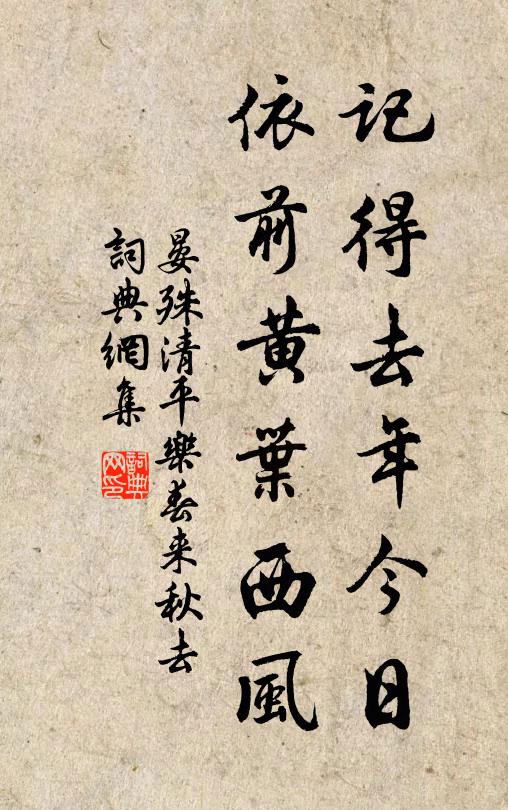 記得去年今日
依前黃葉西風
晏殊清平樂春来秋去
詞典網集
詞典網印